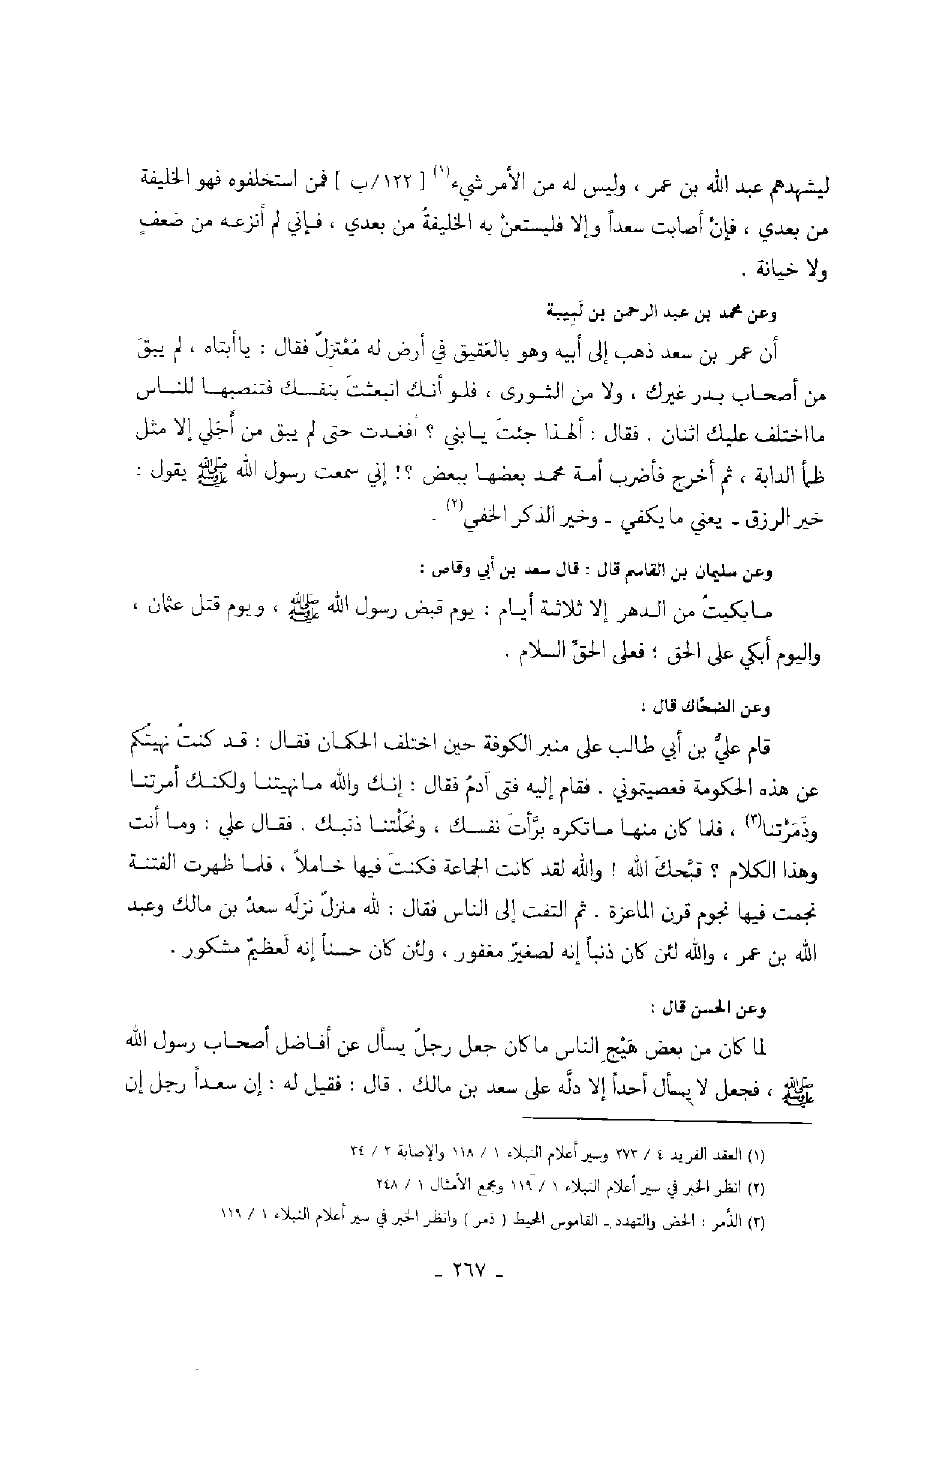 ليشهدهم عبد الله بن عمر ، وليس له من الأمر شيء(١) [ ١٢٢/ب ] فمن استخلفوه فهو الخليفة
من بعدي ، فإنْ أصابت سعداً وإلا فليستعنْ به الخليفةُ من بعدي ، فـإني لم أنزعـه من ضَعفٍ
ولا خيانة .
وعن محمد بن عبد الرحمن بن لَبِيبة
أن عمر بن سعد ذهب إلى أبيه وهو بالعَقيق في أرض له مُعْتزِلٌ فقال : ياأبتاه ، لم يبقَ
من أصحاب بدر غيرك ، ولا من الشورى ، فلو أنك انبعثتَ بنفسك فتنصبها للناس
مااختلف عليك اثنان . فقال : ألهذا جئتَ يابني ؟ أفغدت حتى لم يبق من أَجَلي إلا مثل
ظمأ الدابة ، ثم أخرج فأضرب أمة محمد بعضها ببعض ؟! إني سمعت رسول الله ﷺ يقول :
خير الرزق ـ يعني مايكفي ـ وخير الذكر الخفي(٢) .
وعن سليمان بن القاسم قال : قال سعد بن أبي وقاص :
مابكيتُ من الدهر إلا ثلاثة أيام : يوم قبض رسول الله ﷺ ، ويوم قتل عثمان ،
واليوم أبكي على الحق ؛ فعلى الحقِّ السلام .
وعن الضحّاك قال :
قام عليُّ بن أبي طالب على منبر الكوفة حين اختلف الحكمان فقال : قد كنتُ نهيتُكم
عن هذه الحكومة فعصيتموني . فقام إليه فتى آدمُ فقال : إنك والله مانهيتنا ولكنك أمرتنا
وذَمَرْتنا(٣) ، فلما كان منها ماتكره برَّأتَ نفسك ، ونحَلْتنا ذنبك . فقال علي : وما أنت
وهذا الكلام ؟ قبَّحكَ الله ! والله لقد كانت الجماعة فكنتَ فيها خاملاً ، فلما ظهرت الفتنة
نجمت فيها نجوم قرن الماعزة . ثم التفت إلى الناس فقال : لله منزلٌ نزلَه سعدُ بن مالك وعبد
الله بن عمر ، والله لئن كان ذنباً إنه لصغيرٌ مغفور ، ولئن كان حسناً إنه لَعظيمٌ مشكور .
وعن الحسن قال :
لما كان من بعض هَيْجِ الناس ماكان جعل رجلٌ يسأل عن أفاضل أصحاب رسول الله
ﷺ ، فجعل لا يسأل أحداً إلا دلَّه على سعد بن مالك . قال : فقيل له : إن سعداً رجل إن
(١) العقد الفريد ٤ / ٢٧٣ وسير أعلام النبلاء ١ / ١١٨ والإصابة ٢ / ٣٤
(٢) انظر الخبر في سير أعلام النبلاء ١ / ١١٩ ومجمع الأمثال ١ / ٢٤٨
(٣) الذّمر : الحض والتهدد ـ القاموس المحيط ( ذمر ) وانظر الخبر في سير أعلام النبلاء ١ / ١١٩
ـ ٢٦٧ ـ